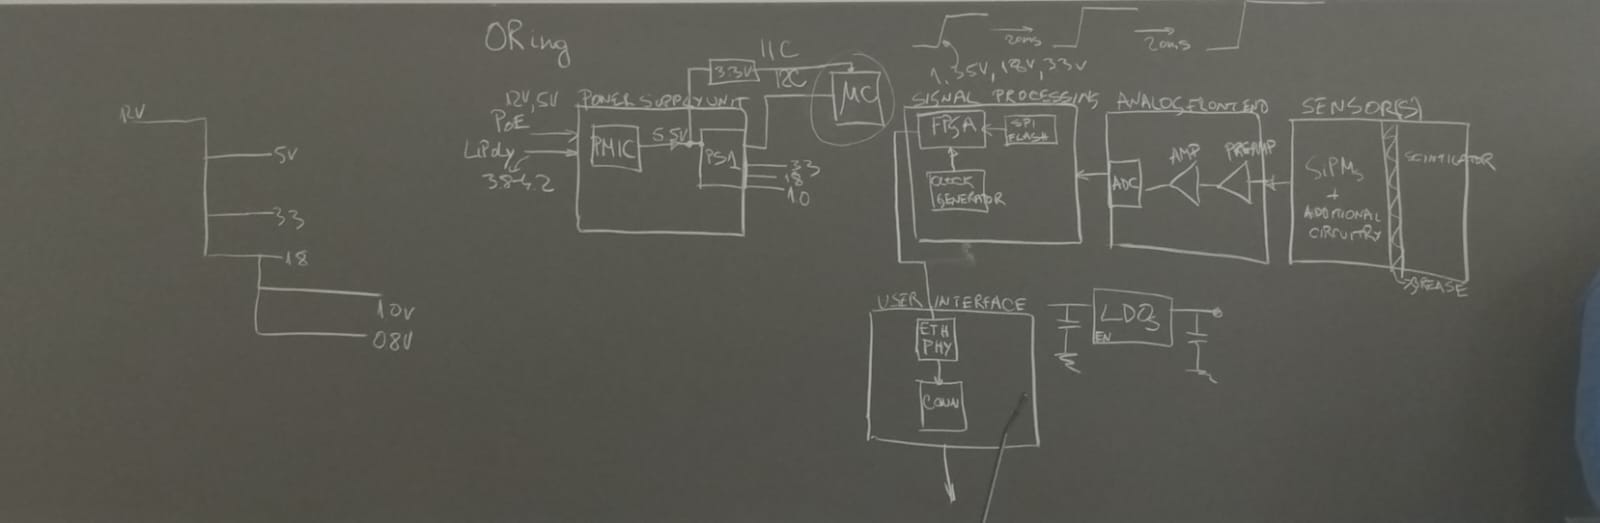 ORing
12V
5V
33
18
10V
08V
12V, 5V
PoE
LiPoly
3.8-4.2
POWER SUPPLY UNIT
PMIC
5.5V
PS1
33
18
10
3.3V
I2C
MC
20ms
20ms
1.35V, 1.8V, 3.3V
SIGNAL PROCESSING
FPGA
SPI
FLASH
CLOCK
GENERATOR
ANALOG FRONT END
ADC
AMP
PREAMP
SENSOR(S)
SiPMs
+
ADDITIONAL
CIRCUITRY
SCINTILATOR
GREASE
USER INTERFACE
ETH
PHY
CONN
LDOs
EN